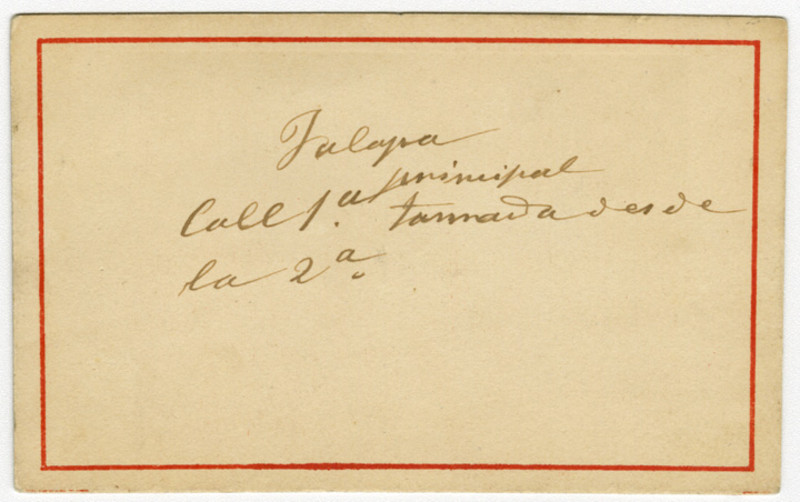 Jalapa
Call 1.ª principal tomada desde
la 2ª